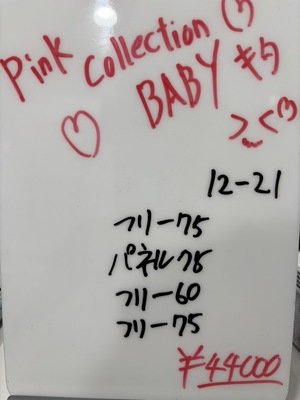 Pink Collection の
BABY キラ
♡ とくの
12-21
フリー75
パネル75
フリー60
フリー75
¥44000